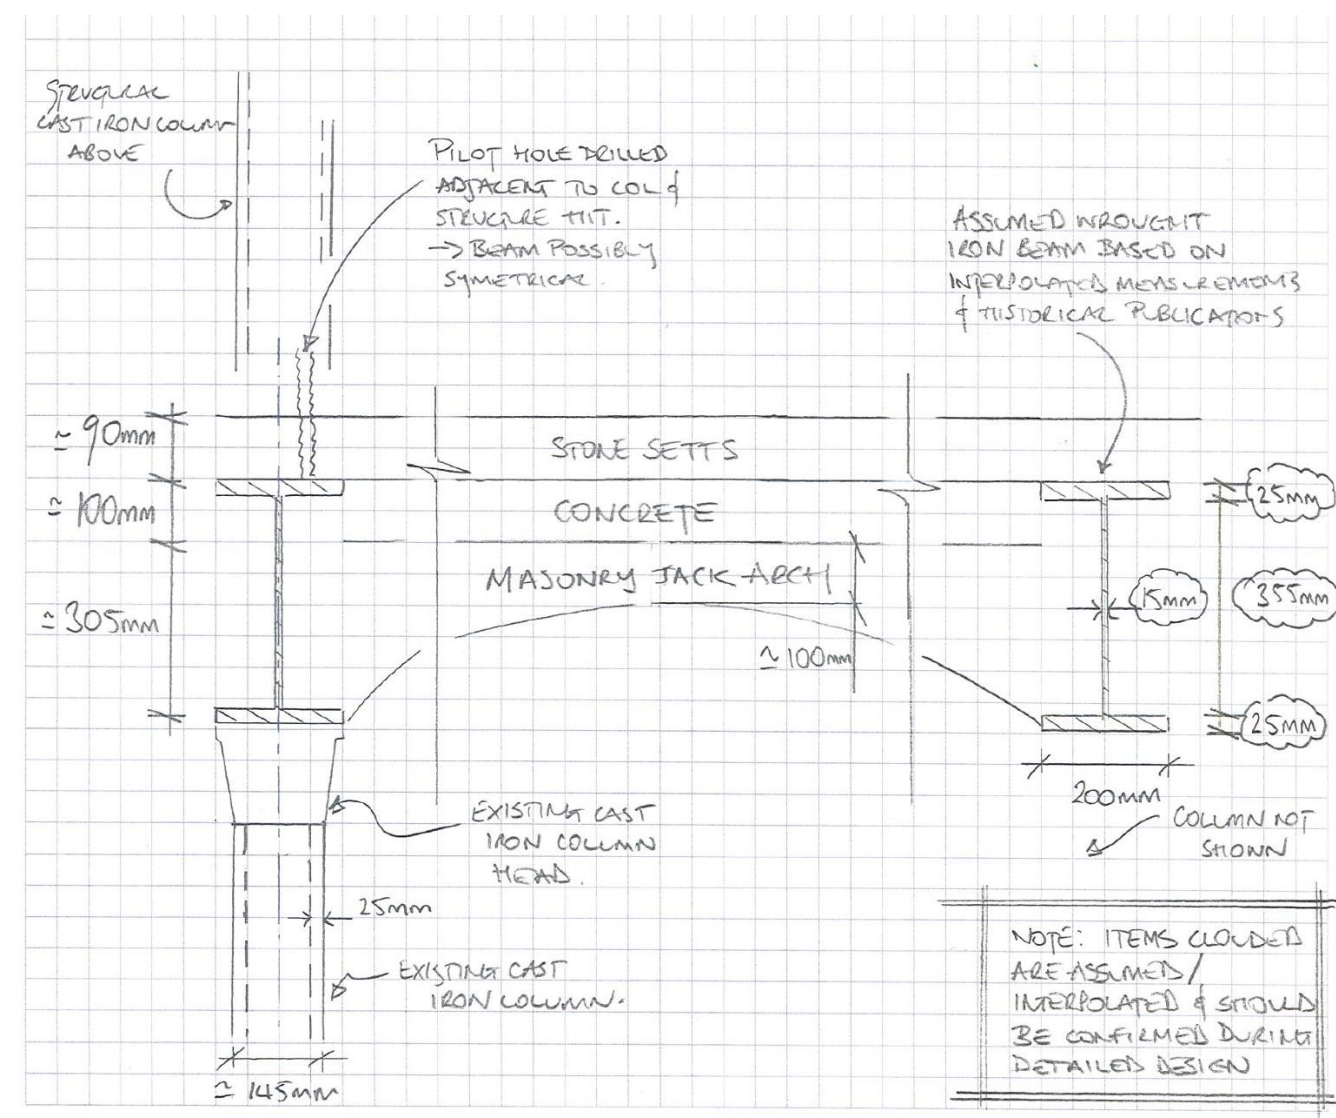 STRUCTURAL
CAST IRON COLUMN
ABOVE
PILOT HOLE DRILLED
ADJACENT TO COL &
STRUCTURE HIT.
→ BEAM POSSIBLY
SYMETRICAL.
ASSUMED WROUGHT
IRON BEAM BASED ON
INTERPOLATED MEASUREMENTS
& HISTORICAL PUBLICATIONS
≃ 90mm
STONE SETTS
≃ 100mm
CONCRETE
25mm
MASONRY JACK ARCH
15mm
355mm
≃ 305mm
≃ 100mm
25mm
200mm
EXISTING CAST
IRON COLUMN
HEAD.
COLUMN NOT
SHOWN
25mm
EXISTING CAST
IRON COLUMN.
≃ 145mm
NOTE: ITEMS CLOUDED
ARE ASSUMED/
INTERPOLATED & SHOULD
BE CONFIRMED DURING
DETAILED DESIGN